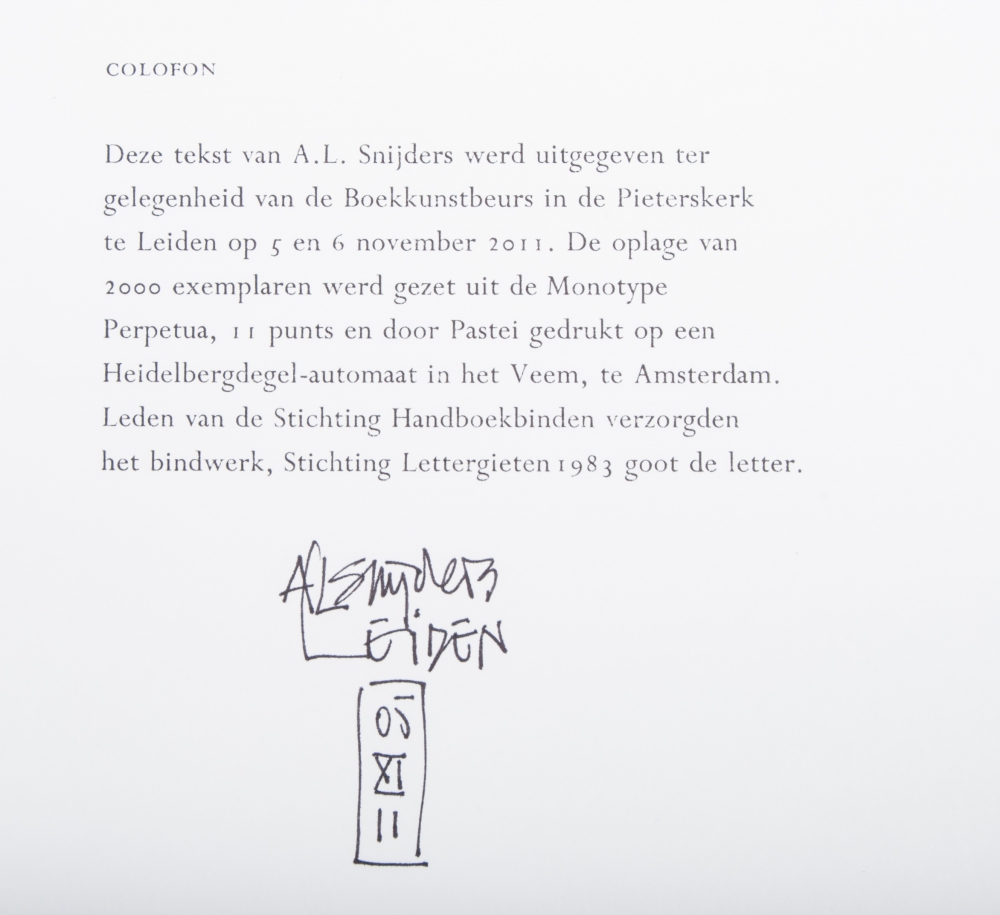 COLOFON
Deze tekst van A.L. Snijders werd uitgegeven ter
gelegenheid van de Boekkunstbeurs in de Pieterskerk
te Leiden op 5 en 6 november 2011. De oplage van
2000 exemplaren werd gezet uit de Monotype
Perpetua, 11 punts en door Pastei gedrukt op een
Heidelbergdegel-automaat in het Veem, te Amsterdam.
Leden van de Stichting Handboekbinden verzorgden
het bindwerk, Stichting Lettergieten 1983 goot de letter.
ALSnijders
LEiDEN
05
XI
11